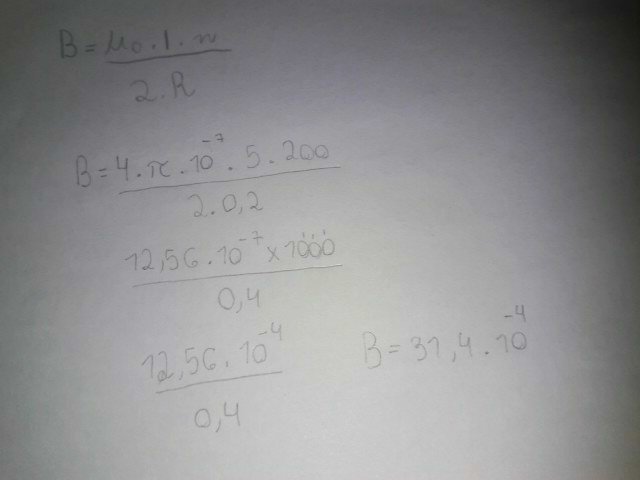 B = μ₀ . I . n
2 . R
B = 4 . π . 10⁻⁷ . 5 . 200
2 . 0,2
12,56 . 10⁻⁷ x 1000
0,4
12,56 . 10⁻⁴
0,4
B = 31,4 . 10⁻⁴